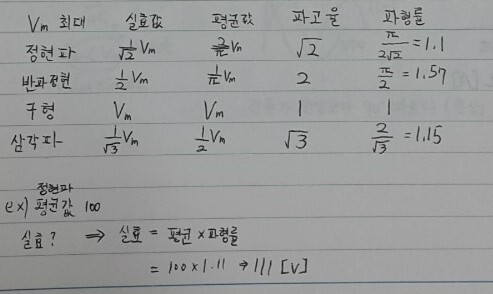 Vm 최대 실효값 평균값 파고율 파형률
정현파 1/√2 Vm 2/π Vm √2 π/2√2 = 1.1
반파정현 1/2 Vm 1/π Vm 2 π/2 = 1.57
구형 Vm Vm 1 1
삼각파 1/√3 Vm 1/2 Vm √3 2/√3 = 1.15
정현파
ex) 평균값 100
실효? ⇒ 실효 = 평균 × 파형률
= 100 × 1.11 → 111 [V]